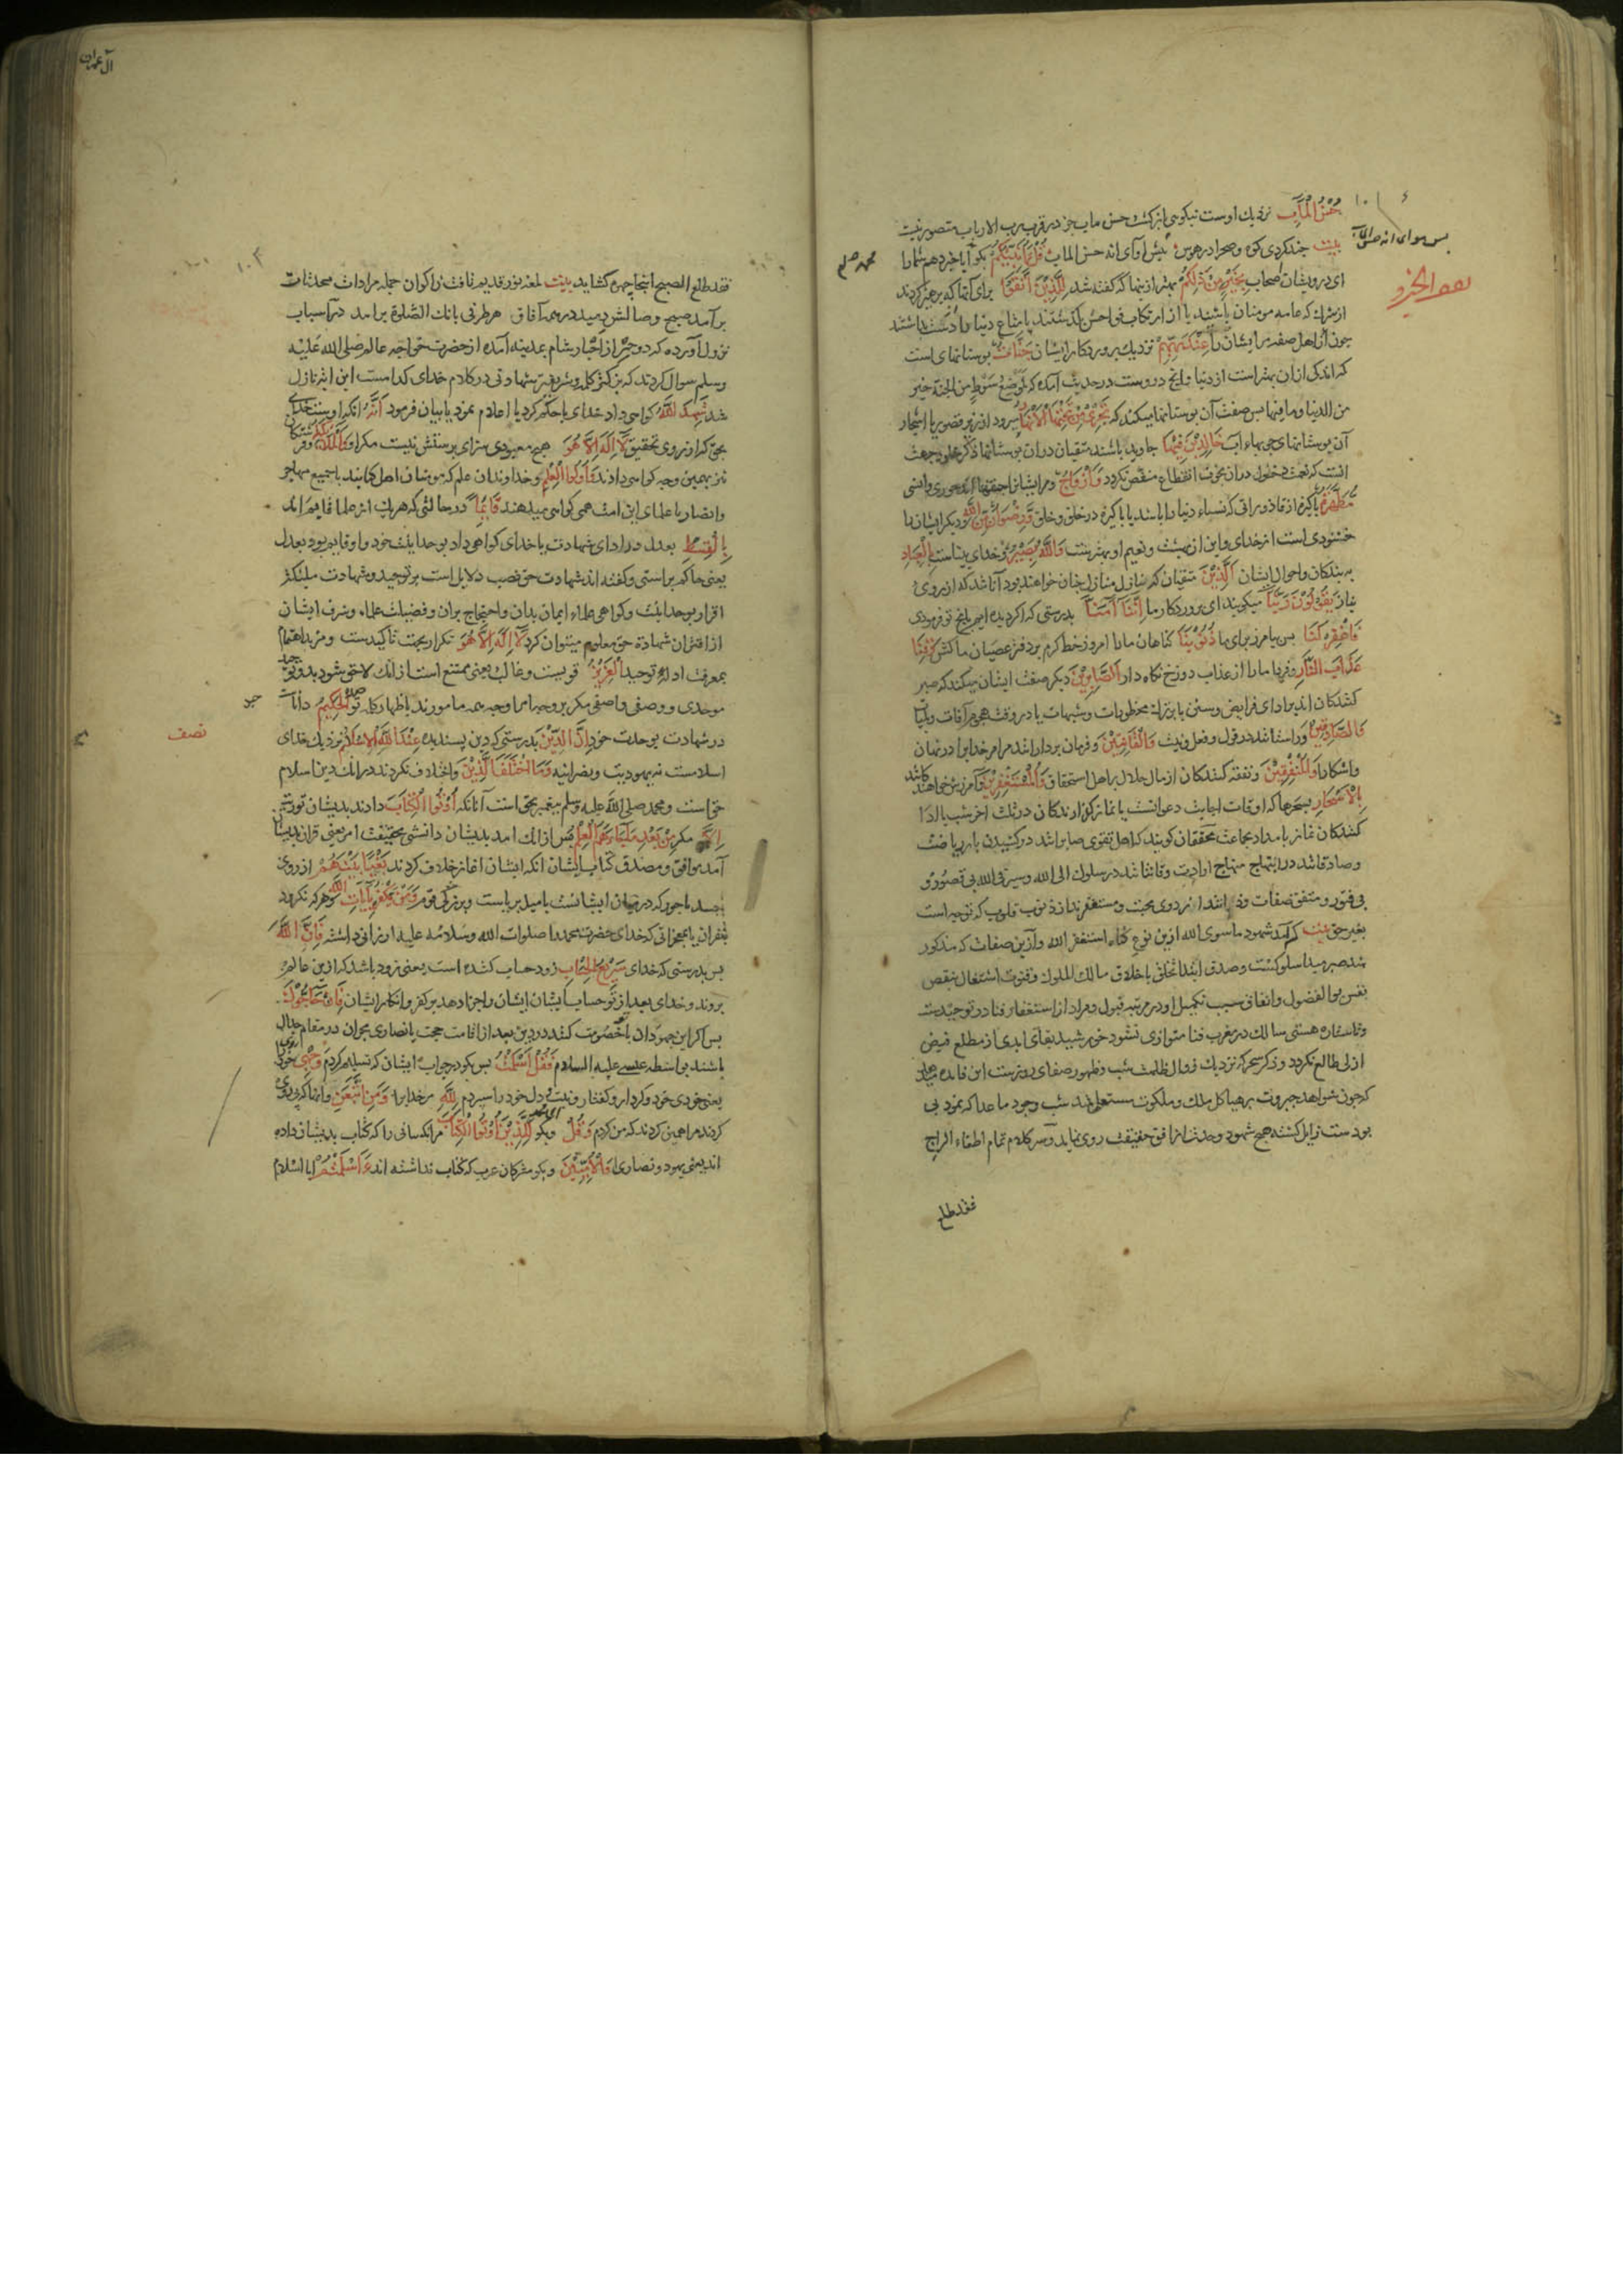 حُسْنُ الْمَآبِ نزدیک اوست نیکویی بازگشت حسن مآب جز در قرب رب الارباب متصور نیست
بیت جند کردی کوه و صحرا در هوس قُلْ أَؤُنَبِّئُكُمْ بکو آیا خبر دهم شمارا
ای درویشان اصحاب بِخَيْرٍ مِنْ ذَلِكُمْ بهتر از ینها که گفته شد لِلَّذِينَ اتَّقَوْا برای آنها که پرهیز کردند
از شرک که عامه مومنان باشند یا از ارتکاب
عِنْدَ رَبِّهِمْ نزدیک پروردکار ایشان جَنَّاتٌ بوستانهای است
که اندکی ازان بهتر است از دنیا و انج دروست در حدیث آمده که لموضع سوط من الجنة خیر
من الدنیا وما فیها بس صفت آن بوستانها میکند که تَجْرِي مِنْ تَحْتِهَا الْأَنْهَارُ میرود از زیر قصور یا اشجار
آن بوستانها جویهاء اب خَالِدِينَ فِيهَا جاوید باشند متقیان دران بوستانها
وَأَزْوَاجٌ
مُطَهَّرَةٌ پاکیزه از قاذوراتی که نساء دنیا را باشد یا پاکیزه در خلق و خلق وَرِضْوَانٌ مِنَ اللَّهِ و دیگر ایشان را
خشنودی است از خدای و این از بهشت و نعیم او بهترست وَاللَّهُ بَصِيرٌ و خدای بیناست بِالْعِبَادِ
به بندکان و احوال ایشان الَّذِينَ متقیان که
يَقُولُونَ رَبَّنَا میکویند ای پروردکار ما إِنَّنَا آمَنَّا بدرستی که ما کرویده ایم بانج تو فرمودی
فَاغْفِرْ لَنَا بس بیامرز برای ما ذُنُوبَنَا کناهان مارا امروز خط کرم بر دفتر عصیان ما کش وَقِنَا
عَذَابَ النَّارِ و فردا مارا از عذاب دوزخ نکاه دار الصَّابِرِينَ دیکر صفت ایشان میکند که صبر
کنندکان اند بر ادای فرایض و سنن یا بر ترک محظورات و شبهات یا در وقت هجوم آفات و بلیات
وَالصَّادِقِينَ و راستانند در قول و فعل و نیت وَالْقَانِتِينَ و فرمان بردارانند مر خدایرا در نهان
واشکارا وَالْمُنْفِقِينَ و نفقه کنندکان از مال حلال بر اهل استحقاق وَالْمُسْتَغْفِرِينَ و آمرزش خواهندکانند
بِالْأَسْحَارِ بسحرها که اوقات اجابت دعوانست یا نماز کزارندکان در ثلث اخر شب یا ادا
کنندکان نماز بامداد بجماعت محققان کویند که اهل تقوی صابرانند در کشیدن بار ریاضت
وصادقانند در ابتهاج منهاج ارادت و قانتانند در سلوک الی الله و سیر فی الله بی قصور و
بی فتور و منفق صفات و ذاتند از روی محبت و مستغفرند از ذنوب قلوب که توجه است
بغیر حق بیت کرآمد شهود ماسوی الله ازین نوع کناه استغفر الله
نفس بوالفضول و انفاق سبب تکمیل او در مرتبه قبول و مراد از استغفار فنا در توحیدست
وتا ستاره هستی سالک در مغرب فنا متواری نشود خورشید بقای ابدی از مطلع فیض
ازلی طالع نکردد و ذکر سحر که نزدیک زوال ظلمت شب و ظهور صفای روزست این فایده میدهد
که چون شواهد جبروت بر هیاکل ملک و ملکوت مستعلی شد شب وجود ما عدا که نمود بی
بودست زایل کشته صبح شهود وحدت از افق حقیقت روی نماید و سر کلام تمام اطفاء السراج
فقد طلع
محمد صلعم
آل عمران
فقد طلع الصبح اینجا چهره کشاید بیت لمعه نور قدیم تافت ز اکوان جمله مرادات محدثات
برآمد صبح وصالش دمید در همه آفاق هر طرفی بانک الصلوة برامد در اسباب
نزول آورده که دو حبر از احبار شام بمدینه آمده از حضرت خواجه عالم صلی الله علیه
وسلم سوال کردند که بزرکتر کلمه و شریفتر شهادتی در کلام خدای کدامست این ایه نازل
شد شَهِدَ اللَّهُ کواهی داد خدای یا حکم کرد یا اعلام نمود یا بیان فرمود أَنَّهُ انکه اوست خدای
بحق که از روی تحقیق لَا إِلَهَ إِلَّا هُوَ هیچ معبودی سزای پرستش نیست مکر او وَالْمَلَائِكَةُ و فرشتکان
نیز بهمین وجه کواهی دادند وَأُولُو الْعِلْمِ و خداوندان علم که مومنان اهل کتابند یا جمیع مهاجر
وانصار یا علمای این امت همی کواهی میدهند قَائِمًا در حالتی که هر یک از علما قایم اند
بِالْقِسْطِ بعدل در ادای شهادت یا خدای کواهی داد بوحدانیت خود و او قایم بود بعدل
یعنی حاکم براستی و کفته اند شهادت حق نصب دلایل است بر توحید و شهادت ملئکه
اقرار بوحدانیت و کواهی علماء ایمان بدان و احتجاج بران و فضیلت علماء و شرف ایشان
از اقتران شهادة حق معلوم میتوان کرد لَا إِلَهَ إِلَّا هُوَ تکرار بجهت تاکیدست و مزید اهتمام
بمعرفت ادله توحید الْعَزِيزُ قویست و غالب یعنی ممتنع است از انک لاحق شود بدو توحید
موحدی و وصفی واصفی مکر بر وجه امر الْحَكِيمُ داناست
در شهادت بوحدت خود إِنَّ الدِّينَ بدرستی که دین پسندیده عِنْدَ اللَّهِ الْإِسْلَامُ نزدیک خدای
اسلامست نه یهودیت و نصرانیه وَمَا اخْتَلَفَ الَّذِينَ و اختلاف نکردند درانک دین اسلام
حق است و محمد صلی الله علیه وسلم پیغمبر بحق است آنانکه أُوتُوا الْكِتَابَ دادند بدیشان توریت
إِلَّا مکر مِنْ بَعْدِ مَا جَاءَهُمُ الْعِلْمُ پس از انک امد بدیشان دانشی بحقیقت امر یعنی قران بدیشان
آمد موافق و مصدق کتاب ایشان انکه ایشان اغاز خلاف کردند بَغْيًا بَيْنَهُمْ از روی
حسد وَمَنْ يَكْفُرْ بِآيَاتِ اللَّهِ و هر که نکرود
بقران یا بمعجزاتی که خدای حضرت محمد را صلوات الله وسلامه علیه ارزانی داشته فَإِنَّ اللَّهَ
بس بدرستی که خدای سَرِيعُ الْحِسَابِ زود حساب کننده است یعنی زود باشد که ازین عالم
بروند و خدای بعد از حساب ایشان و جزا دهد بر کفر و انکار ایشان فَإِنْ حَاجُّوكَ
بس اکر این جهودان با تو خصومت کنند در دین بعد از اقامت حجت یا نصاری نجران در مقام جدال
باشند بواسطه عیسی علیه السلام فَقُلْ أَسْلَمْتُ بس بکو در جواب ایشان که تسلیم کردم وَجْهِيَ
یعنی خودی خود و کردار و کفتار و نیت و دل خود را سپردم لِلَّهِ مر خدایرا وَمَنِ اتَّبَعَنِ و آنها که پی روی
کردند مرا همین کردند که من کردم وَقُلْ و بکو لِلَّذِينَ أُوتُوا الْكِتَابَ مر انکسانی را که کتاب بدیشان داده
اند یعنی یهود و نصاری وَالْأُمِّيِّينَ و بکو مشرکان عرب که کتاب نداشته اند أَأَسْلَمْتُمْ ایا اسلام
نصف